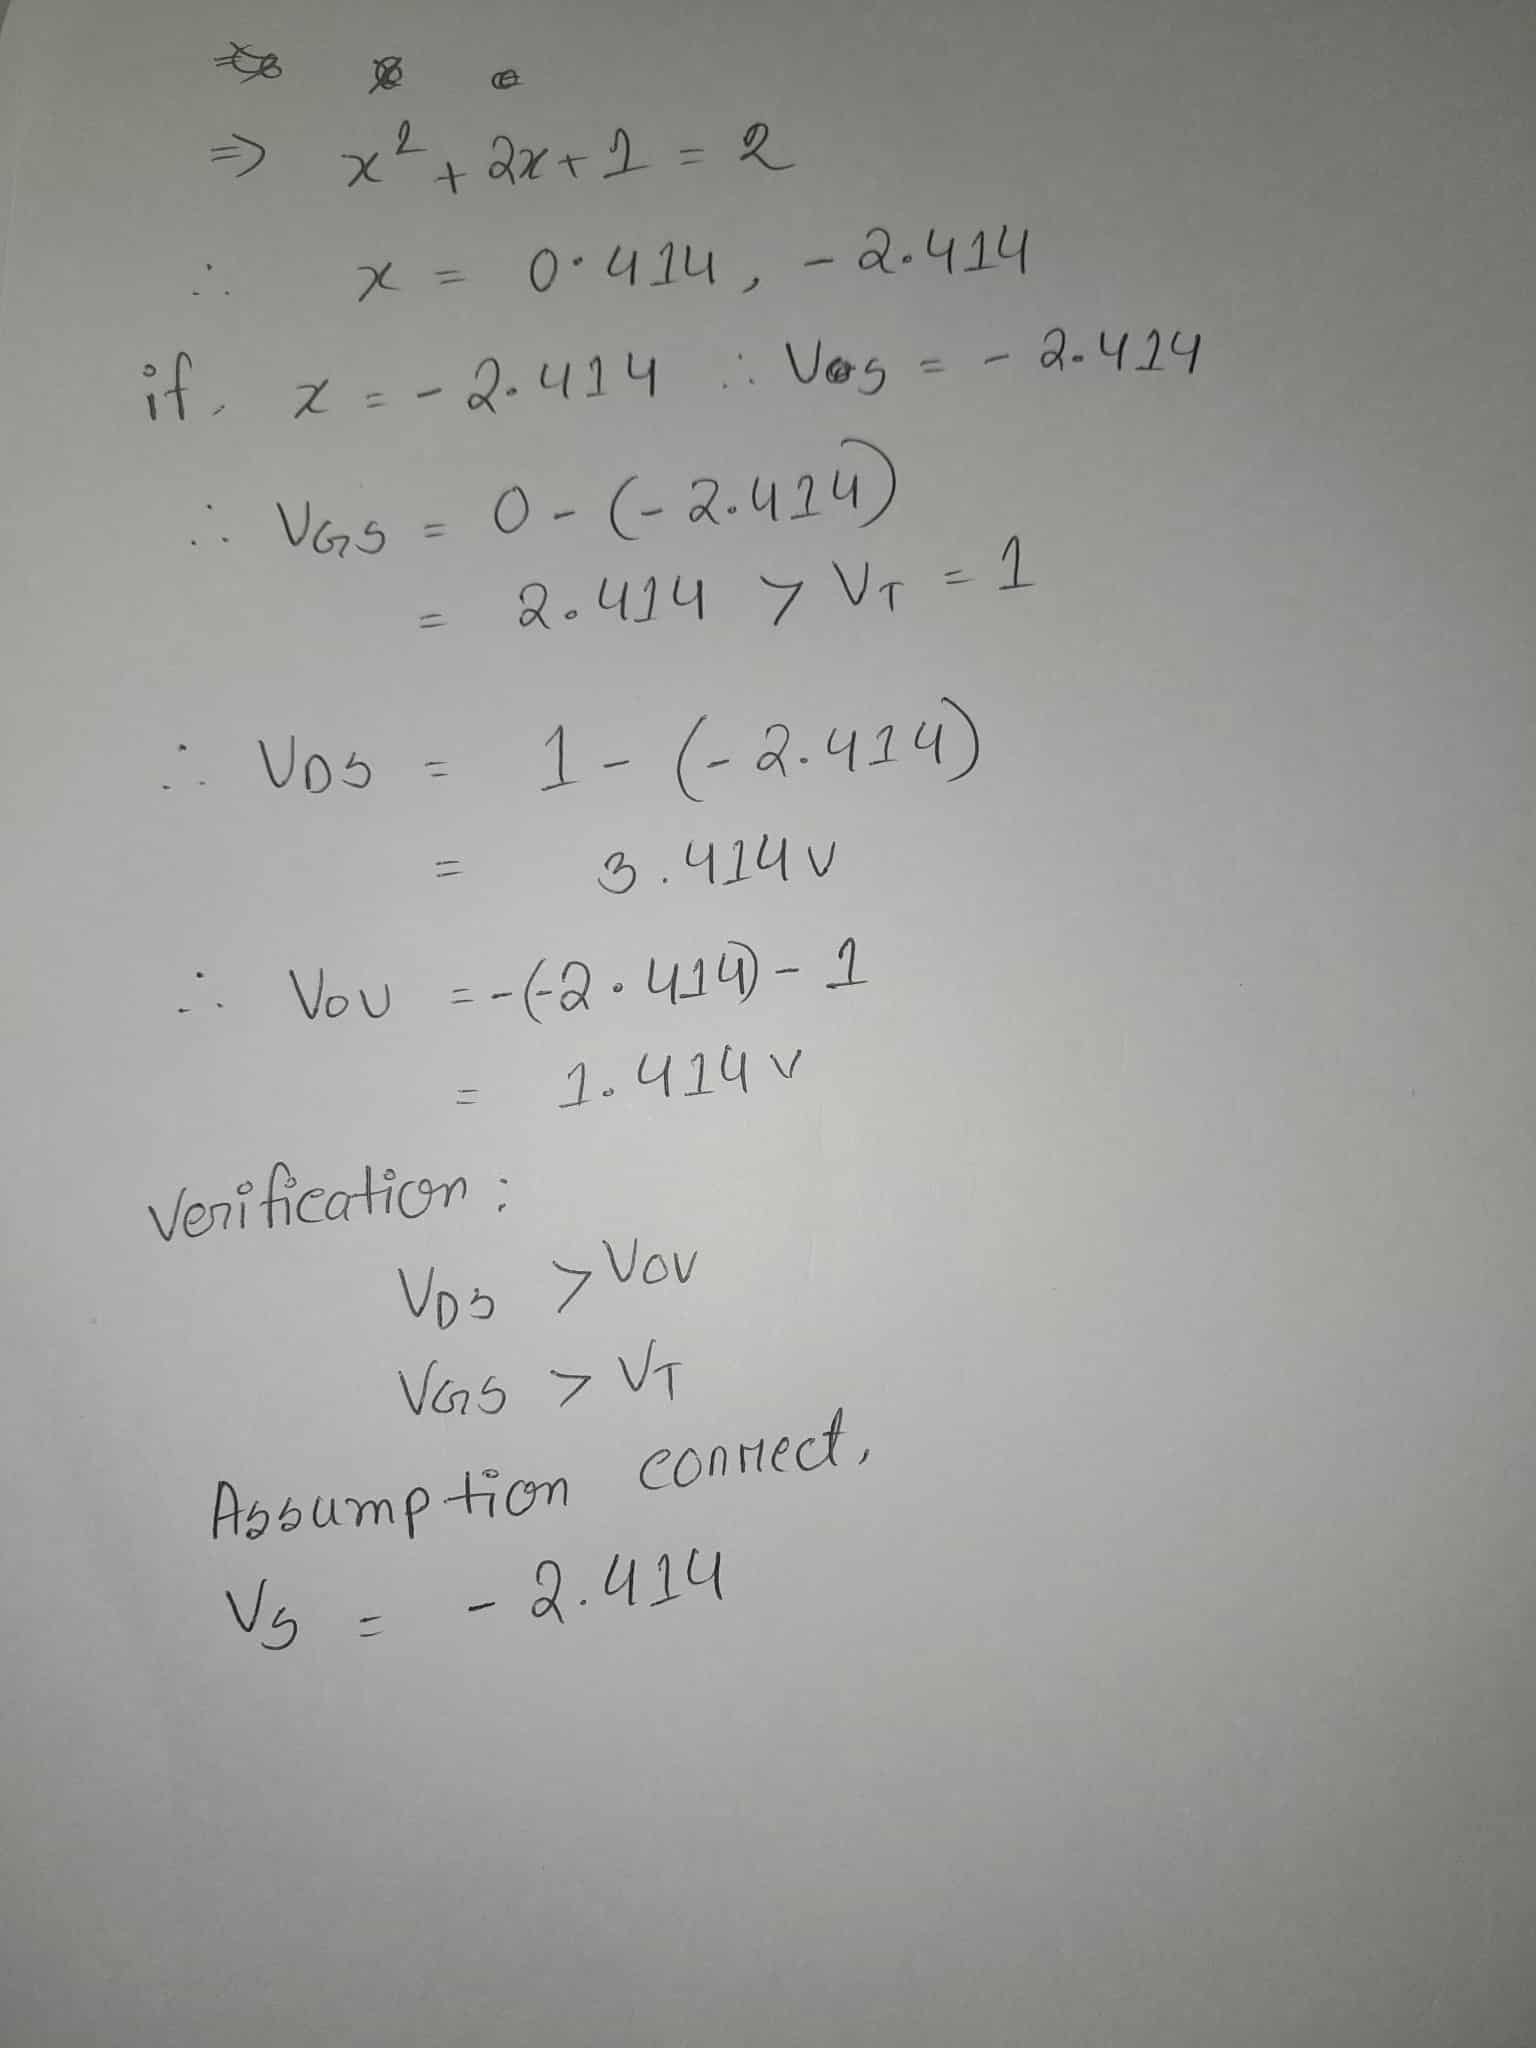 => x² + 2x + 1 = 2
∴ x = 0.414, -2.414
if, x = -2.414 ∴ Vs = -2.414
∴ VGS = 0 - (-2.414)
= 2.414 > VT = 1
∴ VDS = 1 - (-2.414)
= 3.414 v
∴ VOV = -(-2.414) - 1
= 1.414 v
Verification:
VDS > VOV
VGS > VT
Assumption correct,
Vs = -2.414